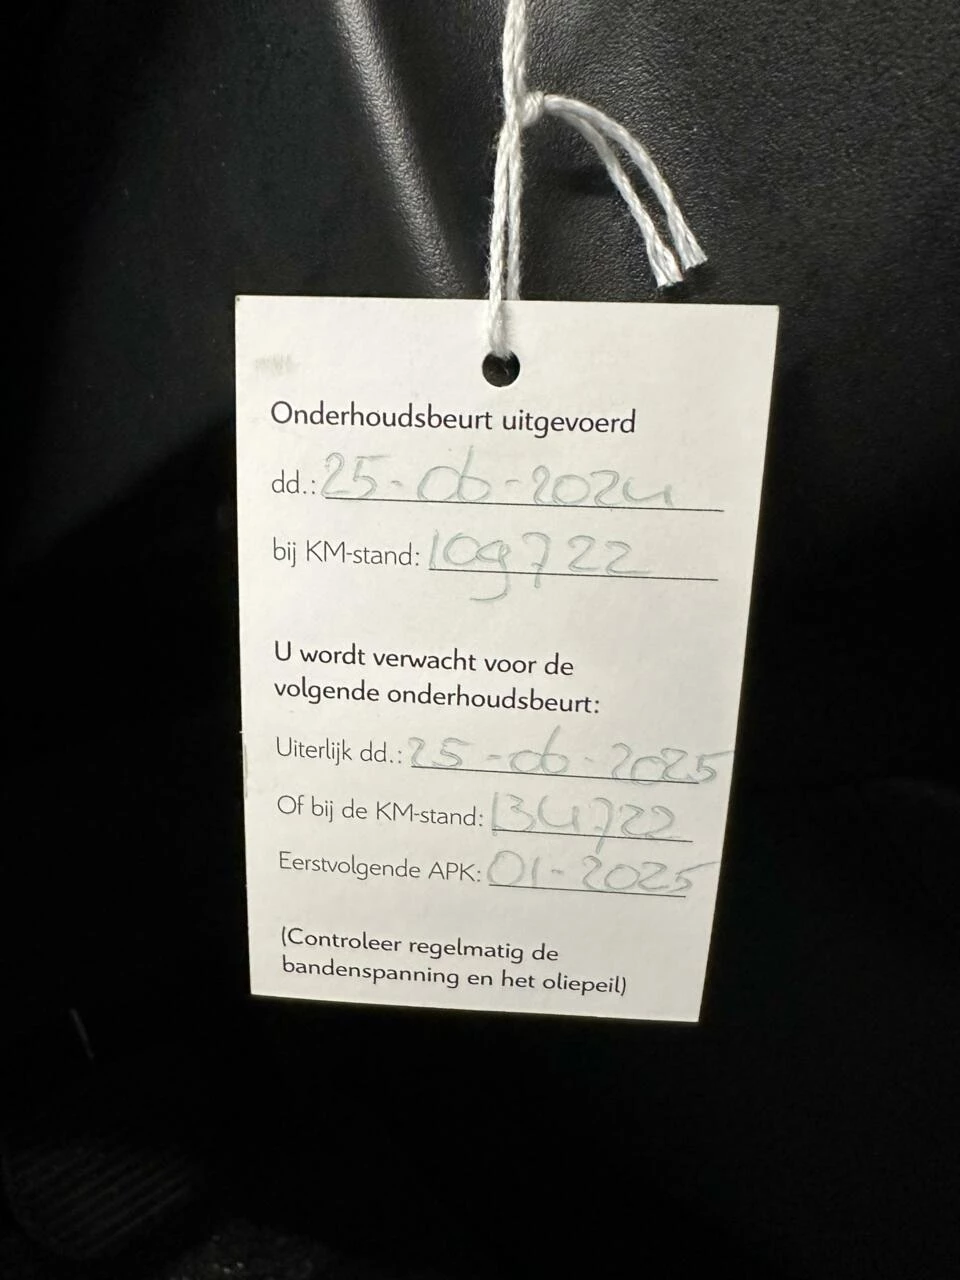 Onderhoudsbeurt uitgevoerd
dd.: 25-06-2024
bij KM-stand: 109722
U wordt verwacht voor de
volgende onderhoudsbeurt:
Uiterlijk dd.: 25-06-2025
Of bij de KM-stand: 134722
Eerstvolgende APK: 01-2025
(Controleer regelmatig de
bandenspanning en het oliepeil)